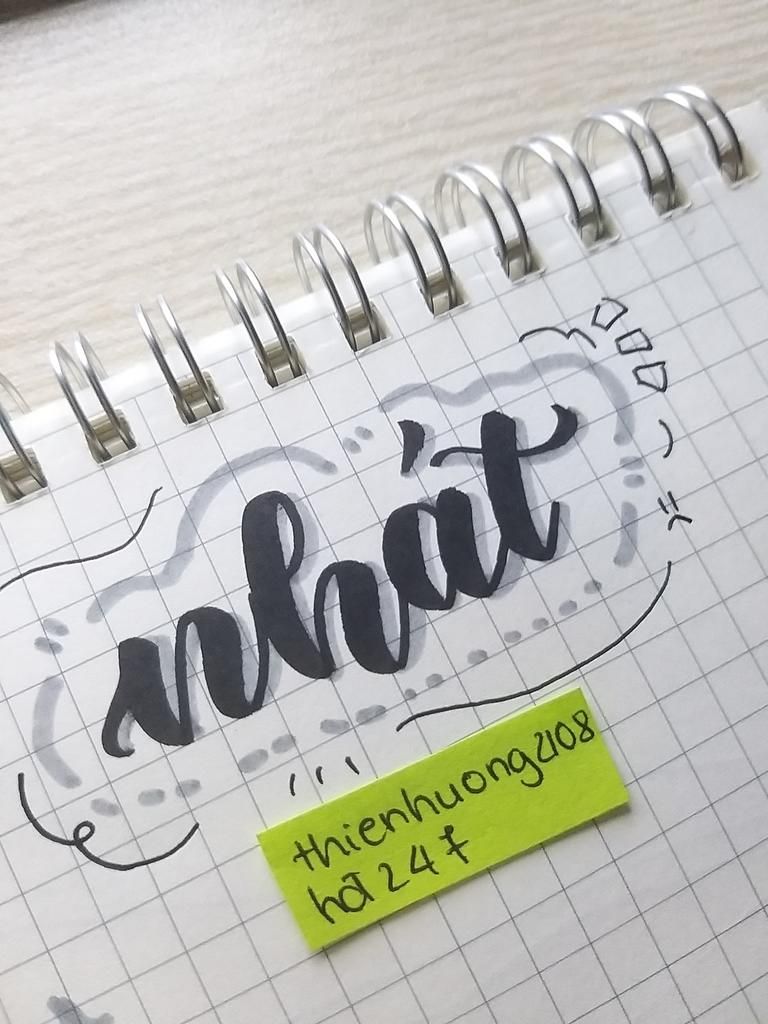 nhát
thienhuong2108
hỏi 247